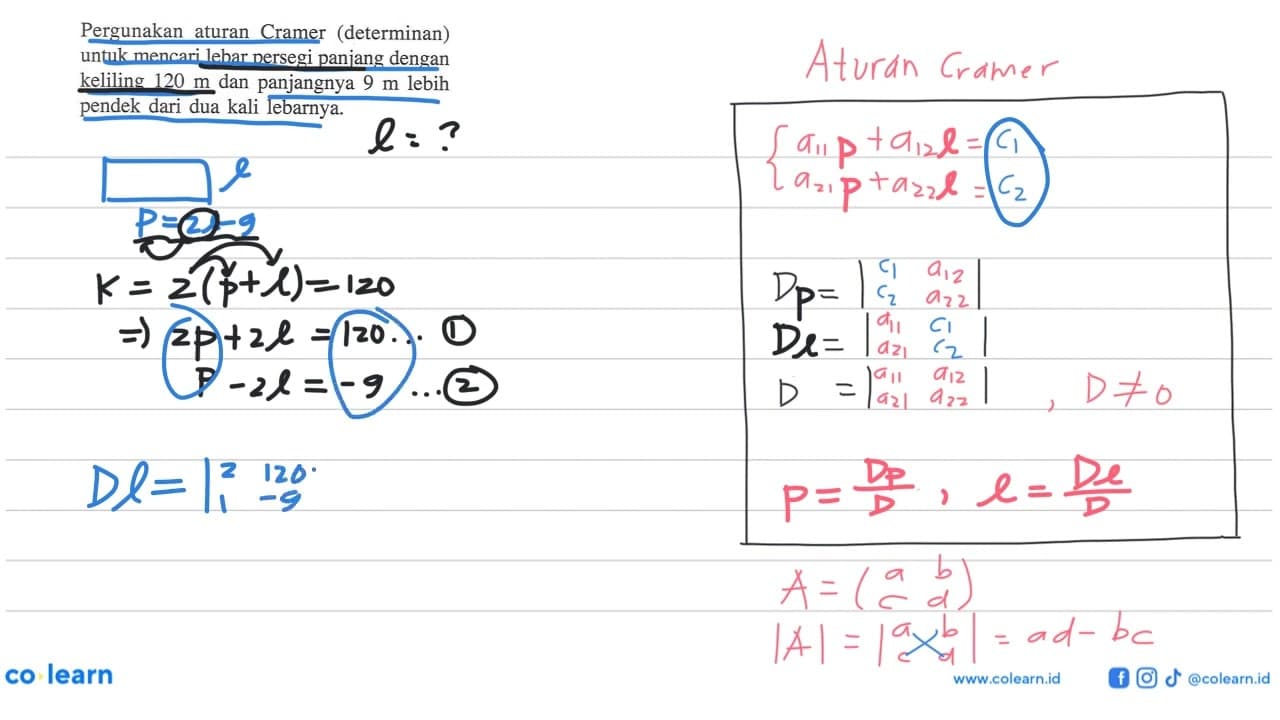 Pergunakan aturan Cramer (determinan)
untuk mencari lebar persegi panjang dengan
keliling 120 m dan panjangnya 9 m lebih
pendek dari dua kali lebarnya.
l = ?
l
P = 2l - 9
K = 2(p + l) = 120
=> 2p + 2l = 120 ... ①
P - 2l = -9 ... ②
Dl = | 2 120
1 -9
Aturan Cramer
{ a11 p + a12 l = c1
a21 p + a22 l = c2
Dp = | c1 a12 |
c2 a22
Dl = | a11 c1 |
a21 c2
D = | a11 a12 | , D ≠ 0
a21 a22
p = Dp/D , l = Dl/D
A = ( a b )
c d
|A| = | a b | = ad - bc
c d
co learn
www.colearn.id
@colearn.id